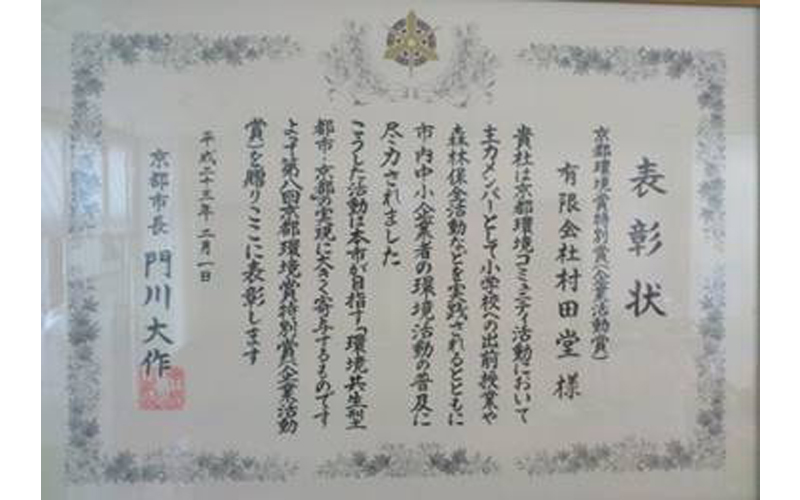 表彰状
京都環境賞特別賞(企業活動賞)
有限会社村田堂 様
貴社は京都環境コミュニティ活動において
主力メンバーとして小学校への出前授業や
森林保全活動などを実践されるとともに
市内中小企業者の環境活動の普及に
尽力されました
こうした活動は本市が目指す「環境共生型
都市・京都」の実現に大きく寄与するものです
よって第八回京都環境賞特別賞(企業活動
賞)を贈りここに表彰します
平成二十三年二月一日
京都市長 門川大作